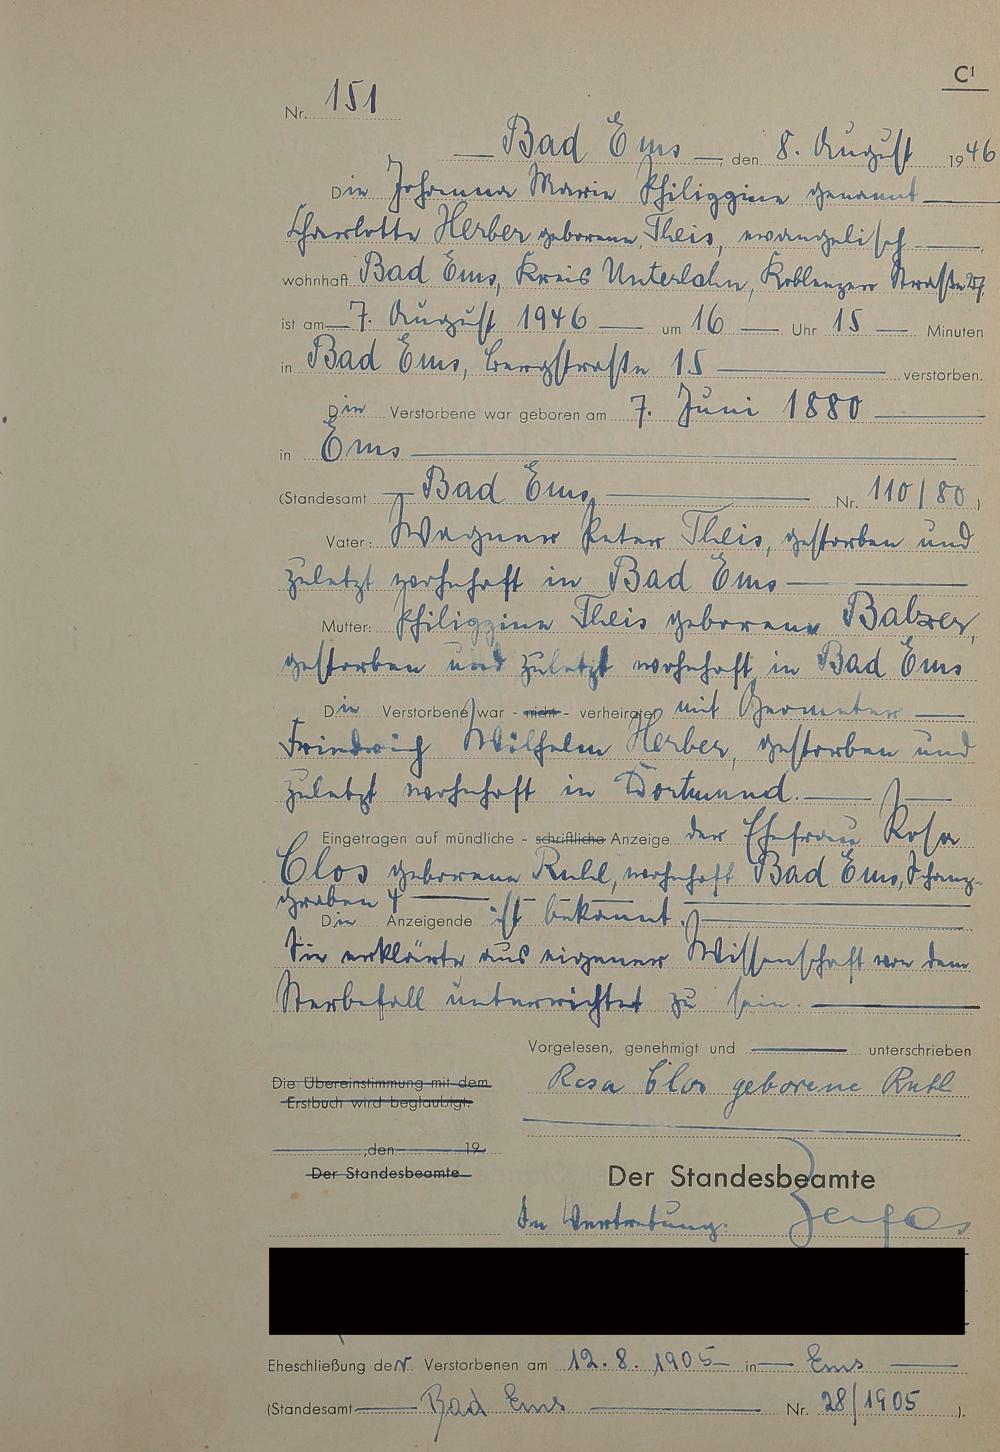 C¹
Nr. 151
Bad Ems, den 8. August 1946
Die Johanna Marie Philippine genannt
Charlotte Herber geborene Theis, evangelisch
wohnhaft Bad Ems, Kreis Unterlahn, Koblenzer Straße 27,
ist am 7. August 1946 um 16 Uhr 15 Minuten
in Bad Ems, Bergstraße 15 verstorben.
Die Verstorbene war geboren am 7. Juni 1880
in Ems
(Standesamt Bad Ems Nr. 110/80)
Vater: Wagner Peter Theis, gestorben und
zuletzt wohnhaft in Bad Ems
Mutter: Philippine Theis geborene Balzer,
gestorben und zuletzt wohnhaft in Bad Ems
Die Verstorbene war - nicht - verheiratet mit Geometer
Friedrich Wilhelm Herber, gestorben und
zuletzt wohnhaft in Dortmund.
Eingetragen auf mündliche - schriftliche Anzeige der Ehefrau Rosa
Clos geborene Ruhl, wohnhaft Bad Ems, Schanz-
graben 4
Die Anzeigende ist bekannt.
Sie erklärte aus eigener Wissenschaft von dem
Sterbefall unterrichtet zu sein.
Vorgelesen, genehmigt und unterschrieben
Rosa Clos geborene Ruhl
Die Übereinstimmung mit dem
Erstbuch wird beglaubigt.
, den 19
Der Standesbeamte
Der Standesbeamte
In Vertretung:
Eheschließung der Verstorbenen am 12.8.1905 in Ems
(Standesamt Bad Ems Nr. 28/1905).